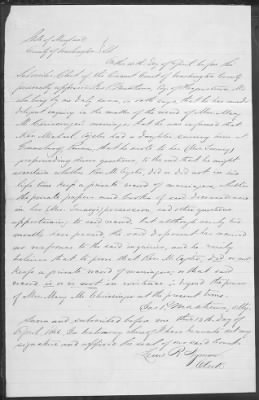 State of Maryland
County of Washington } SS
On this 10th day of April before the
Subscriber Clerk of the Circuit Court of Washington County
personally appeared Esq. of Hagerstown Md
who being by me duly sworn, on oath says that he has made
diligent inquiry in the matter of the record of Mrs. Mary
M. marriage, that he was informed that
Rev. Michael had a daughter
that he wrote to her
propounding divers questions, to the end that he might
ascertain whether Rev. M. did or did not in his
life time keep a private record of marriages, whether
the private papers and books of said deceased were
in her possession, and other questions
appertaining to said record, but although nearly two
months have passed, the said deponent has received
no response to the said inquiries, and he verily
believes that to prove that Rev. M. did or not
keep a private record of marriages, or that said
record is or is not in existence is beyond the power
of Mrs. Mary M. at the present time.
Sworn and subscribed before me this 10th day of
April In testimony whereof I have hereunto set my
signature and affixed the seal of our said Court
Clerk